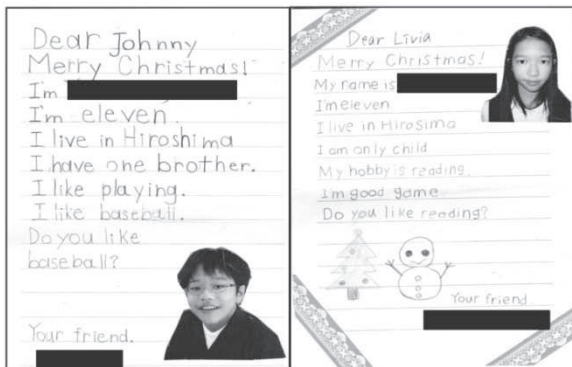 Dear Johnny
Merry Christmas!
I'm
I'm eleven.
I live in Hiroshima
I have one brother.
I like playing.
I like baseball.
Do you like
baseball?
Your friend.
Dear Livia
Merry Christmas!
My name is
I'm eleven
I live in Hirosima
I am only child
My hobby is reading.
I'm good game.
Do you like reading?
Your friend.